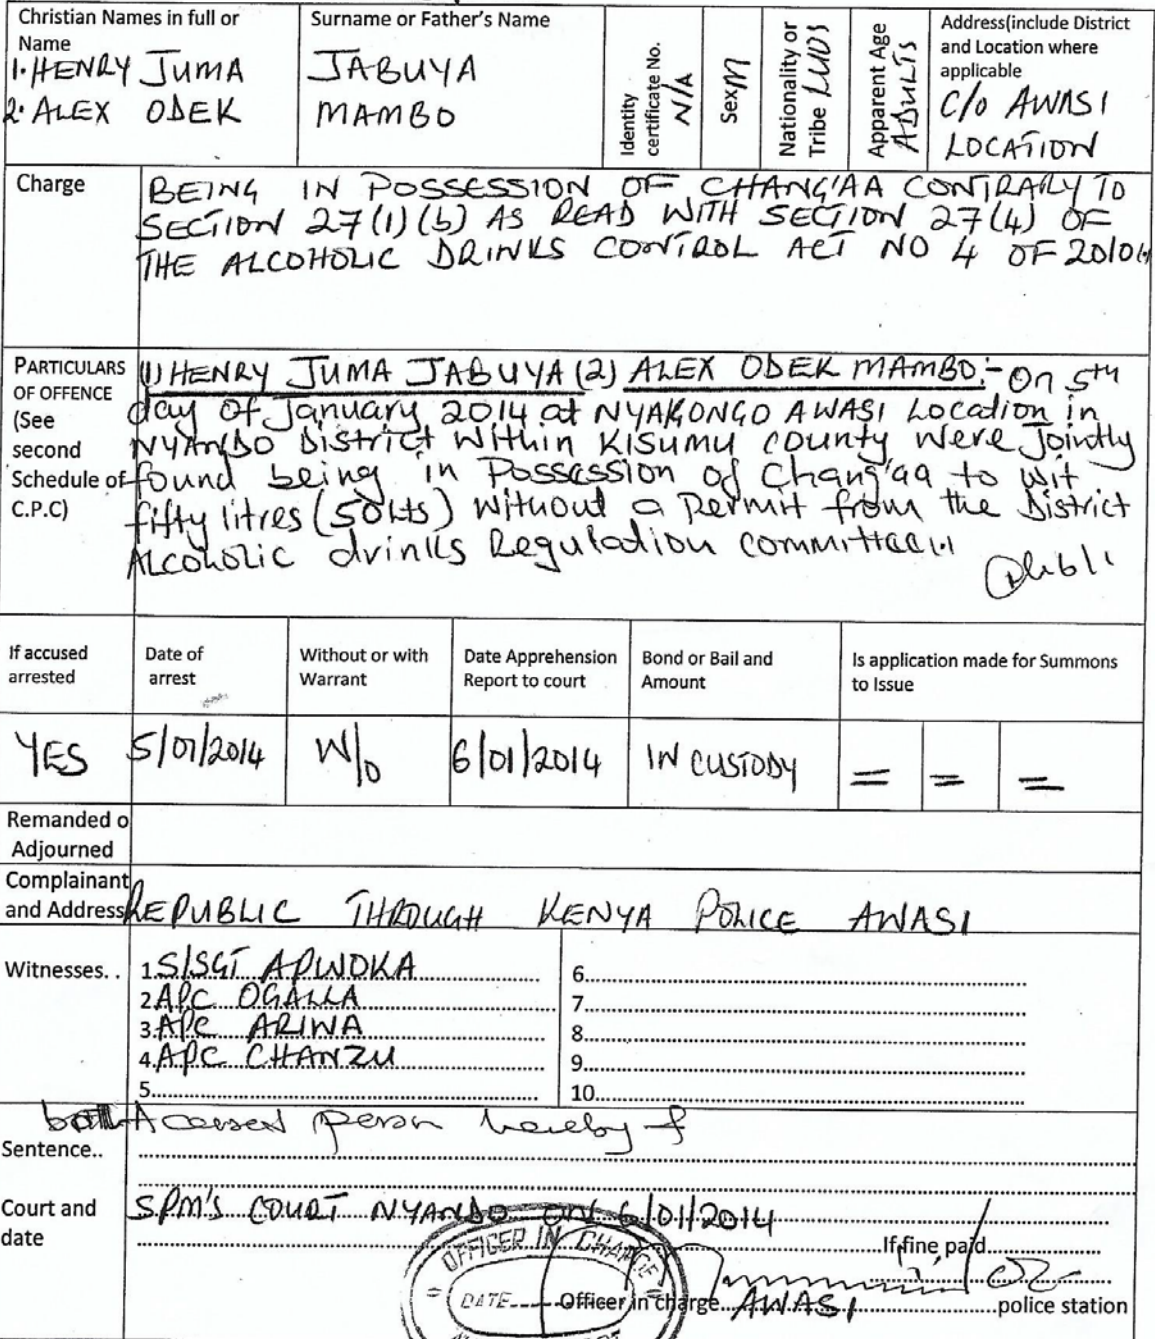 Christian Names in full or Name
1. HENRY JUMA
2. ALEX ODEK
Surname or Father's Name
JABUYA
MAMBO
Identity certificate No.
N/A
Sex M
Nationality or Tribe LUOS
Apparent Age
ADULTS
Address(include District and Location where applicable
C/O AWASI
LOCATION
Charge
BEING IN POSSESSION OF CHANG'AA CONTRARY TO
SECTION 27(1)(b) AS READ WITH SECTION 27(4) OF
THE ALCOHOLIC DRINKS CONTROL ACT NO 4 OF 2010(.)
PARTICULARS
OF OFFENCE
(See
second
Schedule of
C.P.C)
(1) HENRY JUMA JABUYA (2) ALEX ODEK MAMBO:- On 5th
day of January 2014 at NYAKONGO AWASI Location in
NYANDO District Within KISUMU county Were Jointly
found being in Possession of Chang'aa to wit
fifty litres (50Lts) Without a permit from the District
Alcoholic drinks Regulation committee(.)
If accused arrested
Date of arrest
Without or with Warrant
Date Apprehension Report to court
Bond or Bail and Amount
Is application made for Summons to Issue
YES
5/01/2014
W/O
6/01/2014
IN CUSTODY
= = =
Remanded o
Adjourned
Complainant
and Address
REPUBLIC THROUGH KENYA POLICE AWASI
Witnesses. .
1. S/SGT APWOKA
2. APC OGALLA
3. APC ARIWA
4. APC CHANZU
5.
6.
7.
8.
9.
10.
both Accused person hereby f
Sentence..
Court and
date
SPM'S COURT NYANDO ON 6/01/2014
If fine paid
OFFICER IN CHARGE
DATE
Officer in charge AWASI police station